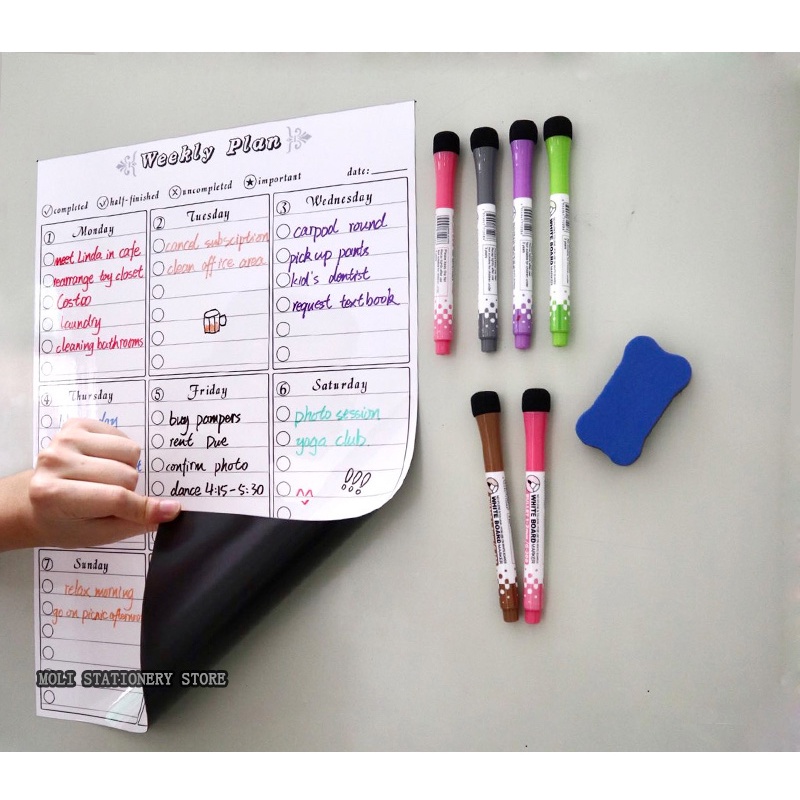 Weekly Plan
completed half-finished uncompleted important date:
1 Monday
meet Linda in cafe
rearrange toy closet
Costco
laundry
cleaning bathrooms
2 Tuesday
cancel subsciption
clean office area
3 Wednesday
carpool round
pick up pants
kid's dentist
request textbook
4 Thursday
5 Friday
buy pampers
rent Due
confirm photo
dance 4:15-5:30
6 Saturday
photo session
yoga club.
!!!
7 Sunday
relax morning
go on picnic afternoon
MOLI STATIONERY STORE
WHITE BOARD
MARKER
WHITE BOARD
MARKER
WHITE BOARD